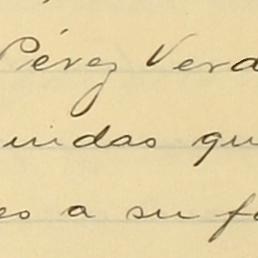 Pérez Verd
uidas qu
es a su f